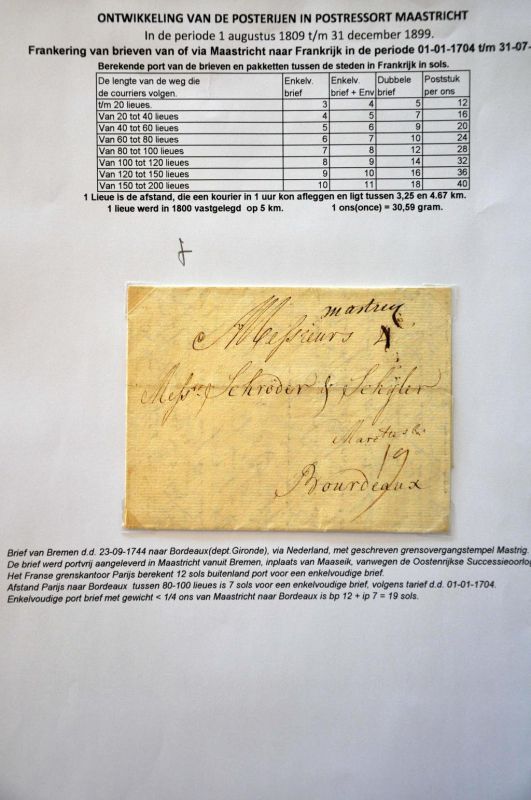 ONTWIKKELING VAN DE POSTERIJEN IN POSTRESSORT MAASTRICHT
In de periode 1 augustus 1809 t/m 31 december 1899.
Frankering van brieven van of via Maastricht naar Frankrijk in de periode 01-01-1704 t/m 31-07-
Berekende port van de brieven en pakketten tussen de steden in Frankrijk in sols.
De lengte van de weg die de courriers volgen. Enkelv. brief Enkelv. brief + Env Dubbele brief Poststuk per ons
t/m 20 lieues. 3 4 5 12
Van 20 tot 40 lieues 4 5 7 16
Van 40 to 60 lieues 5 6 9 20
Van 60 to 80 lieues 6 7 10 24
Van 80 to 100 lieues 7 8 12 28
Van 100 to 120 lieues 8 9 14 32
Van 120 to 150 lieues 9 10 16 36
Van 150 to 200 lieues 10 11 18 40
1 Lieue is de afstand, die een kourier in 1 uur kon afleggen en ligt tussen 3,25 en 4.67 km.
1 lieue werd in 1800 vastgelegd op 5 km. 1 ons(once) = 30,59 gram.
mastrig
Messieurs
Mess.rs Schröder & Schÿler
19
Bourdeaux
Brief van Bremen d.d. 23-09-1744 naar Bordeaux(dept.Gironde), via Nederland, met geschreven grensovergangstempel Mastrig.
De brief werd portvrij aangeleverd in Maastricht vanuit Bremen, inplaats van Maaseik, vanwege de Oostenrijkse Successieoorlog
Het Franse grenskantoor Parijs berekent 12 sols buitenland port voor een enkelvoudige brief.
Afstand Parijs naar Bordeaux tussen 80-100 lieues is 7 sols voor een enkelvoudige brief, volgens tarief d.d. 01-01-1704.
Enkelvoudige port brief met gewicht < 1/4 ons van Maastricht naar Bordeaux is bp 12 + ip 7 = 19 sols.